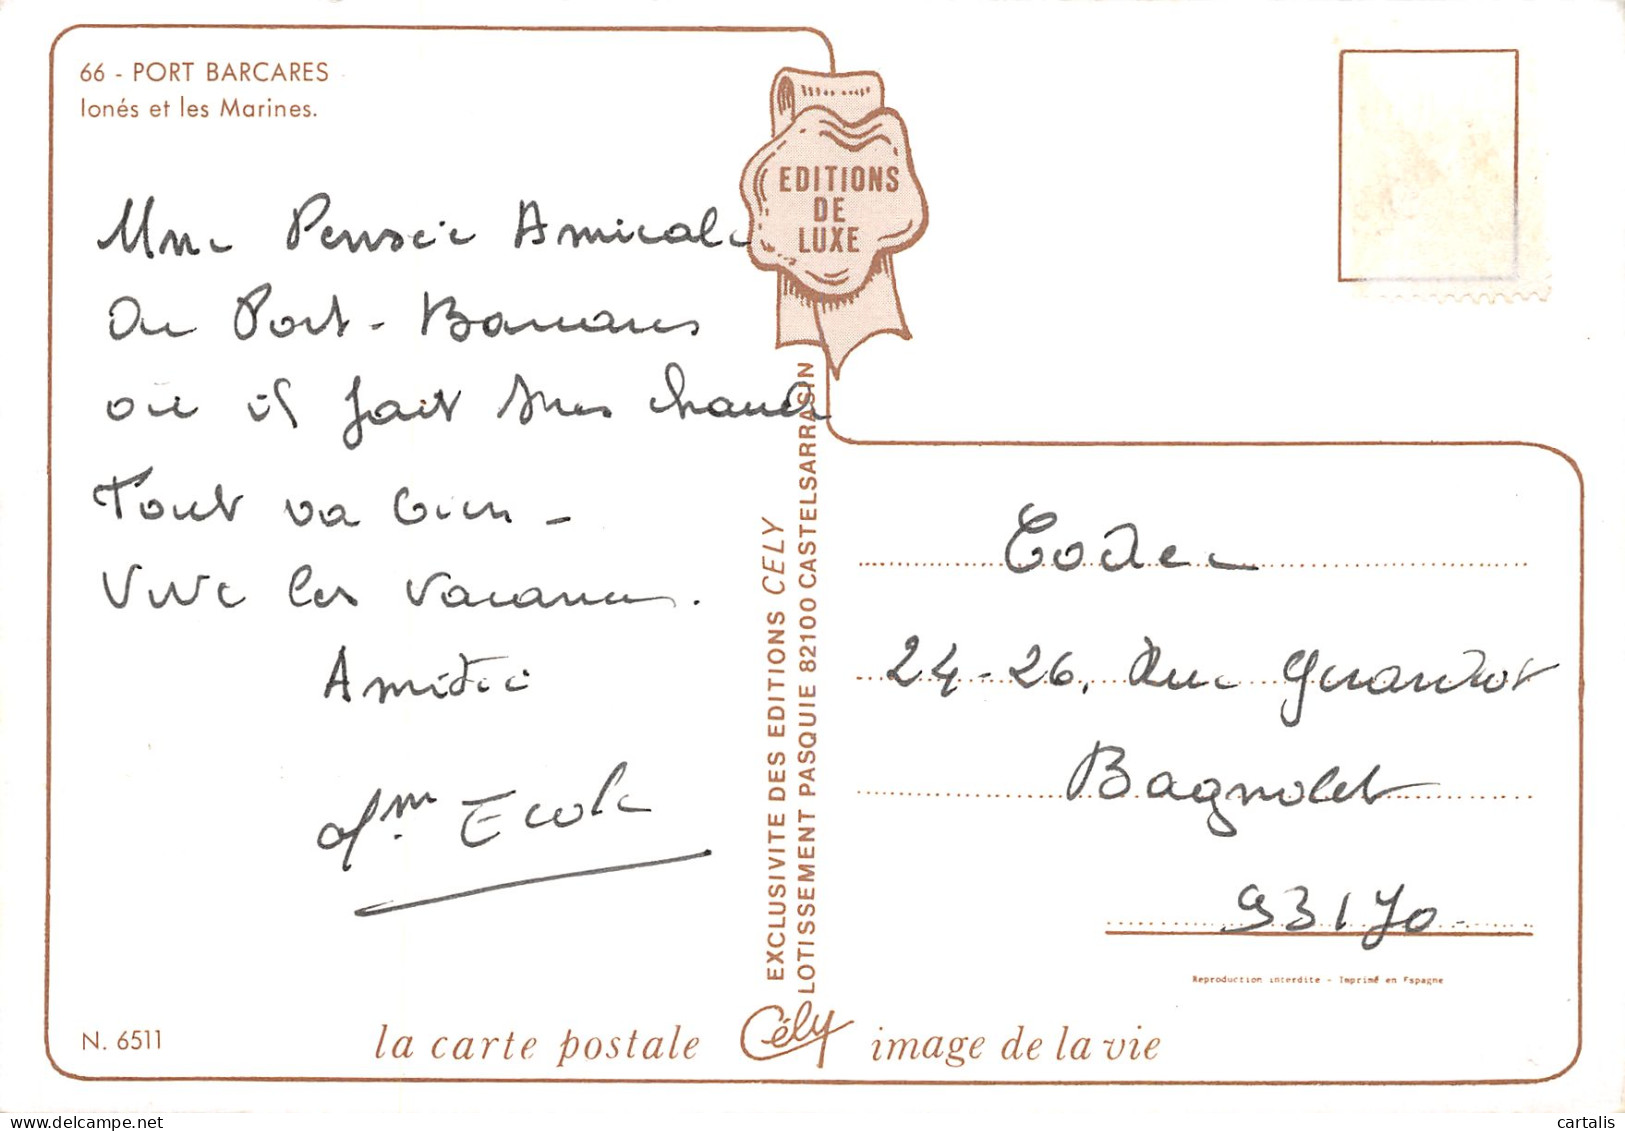 66 - PORT BARCARES
Ionés et les Marines.
EDITIONS
DE
LUXE
Une Pensée Amicale
De Port-Barcares
où il fait très chaud
Tout va bien -
Vive les vacances.
Amitié
Ecole
EXCLUSIVITE DES EDITIONS CELY
LOTISSEMENT PASQUIE 82100 CASTELSARRASIN
24-26, Rue
Bagnolet
93170
Reproduction interdite - Imprimé en Espagne
N. 6511
la carte postale Cély image de la vie
cartalis